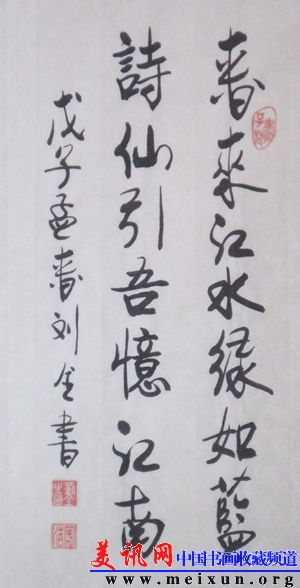 春來江水緑如藍
詩仙引吾憶江南
戊子孟春刘金書
美讯网
中国书画收藏频道
www.meixun.org